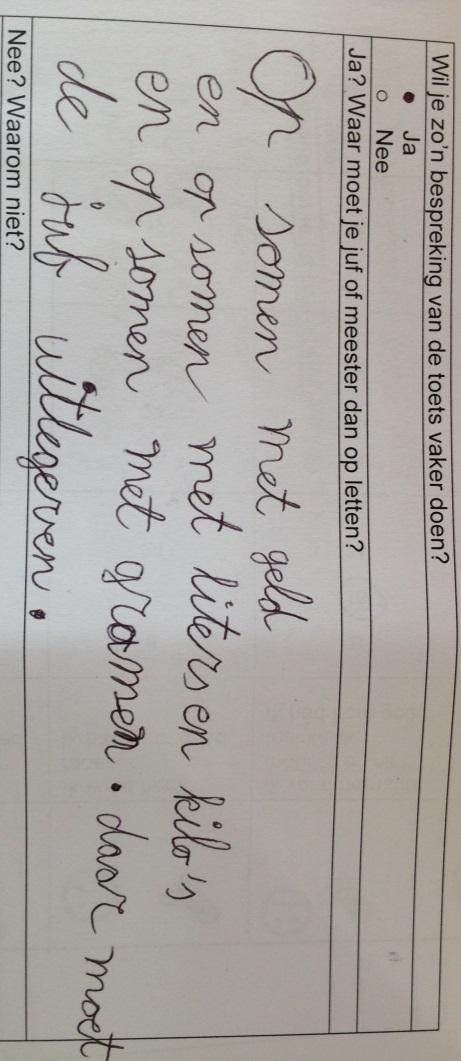 Wil je zo'n bespreking van de toets vaker doen?
● Ja
○ Nee
Ja? Waar moet je juf of meester dan op letten?
Op somen met geld
en op somen met liters en kilo's
en op somen met gramen. daar moet
de juf uitlegerven.
Nee? Waarom niet?